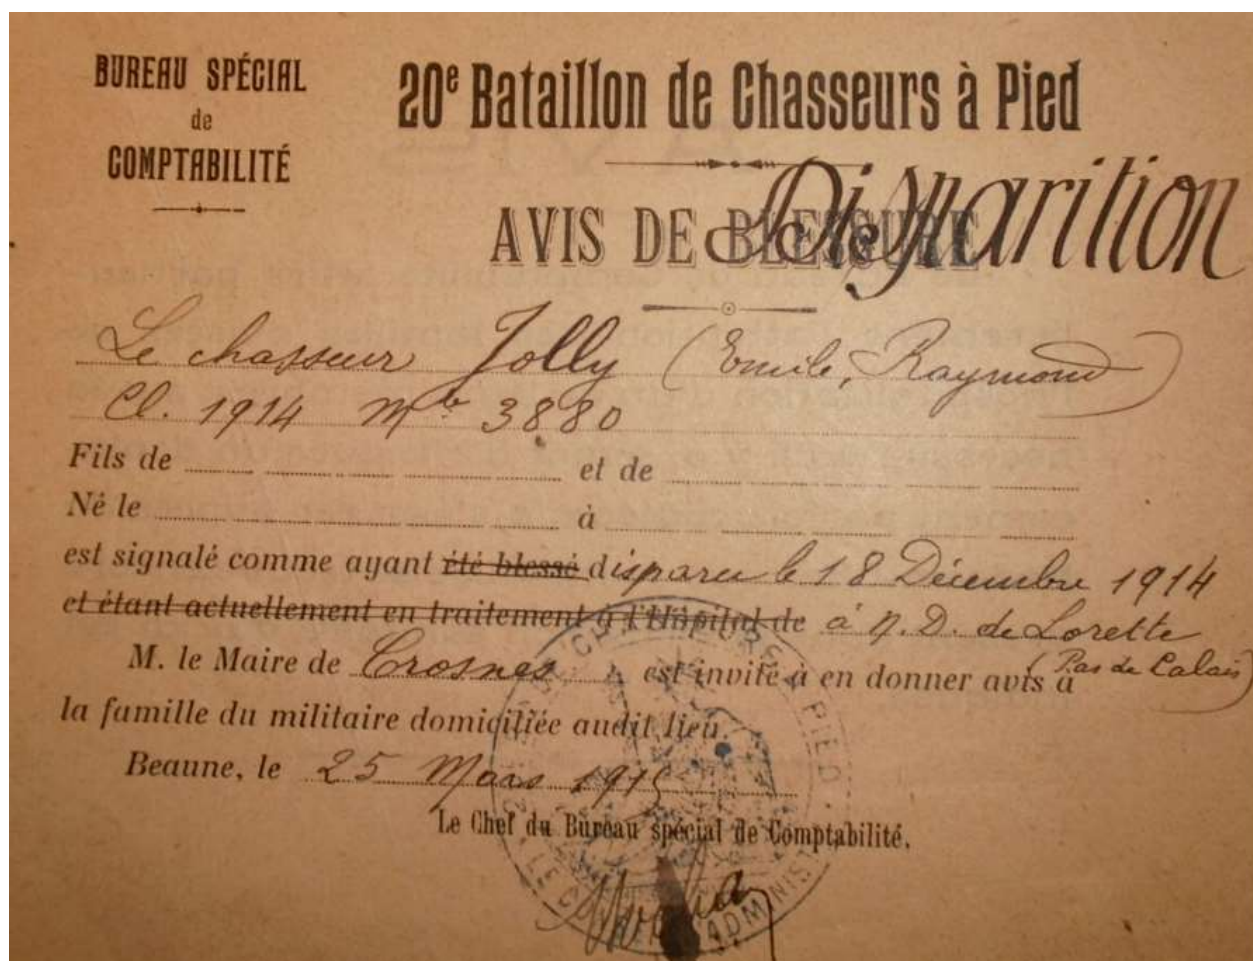 BUREAU SPÉCIAL
de
COMPTABILITÉ
20e Bataillon de Chasseurs à Pied
AVIS DE BLESSURE Disparition
Le chasseur Jolly (Emile, Raymond)
Cl. 1914 Mle 3880
Fils de et de
Né le à
est signalé comme ayant été blessé disparu le 18 Décembre 1914
et étant actuellement en traitement à l'Hôpital de à N. D. de Lorette
(Pas de Calais)
M. le Maire de Crosnes est invité à en donner avis à
la famille du militaire domiciliée audit lieu.
Beaune, le 25 Mars 1915
Le Chef du Bureau spécial de Comptabilité.
CHASSEURS A PIED